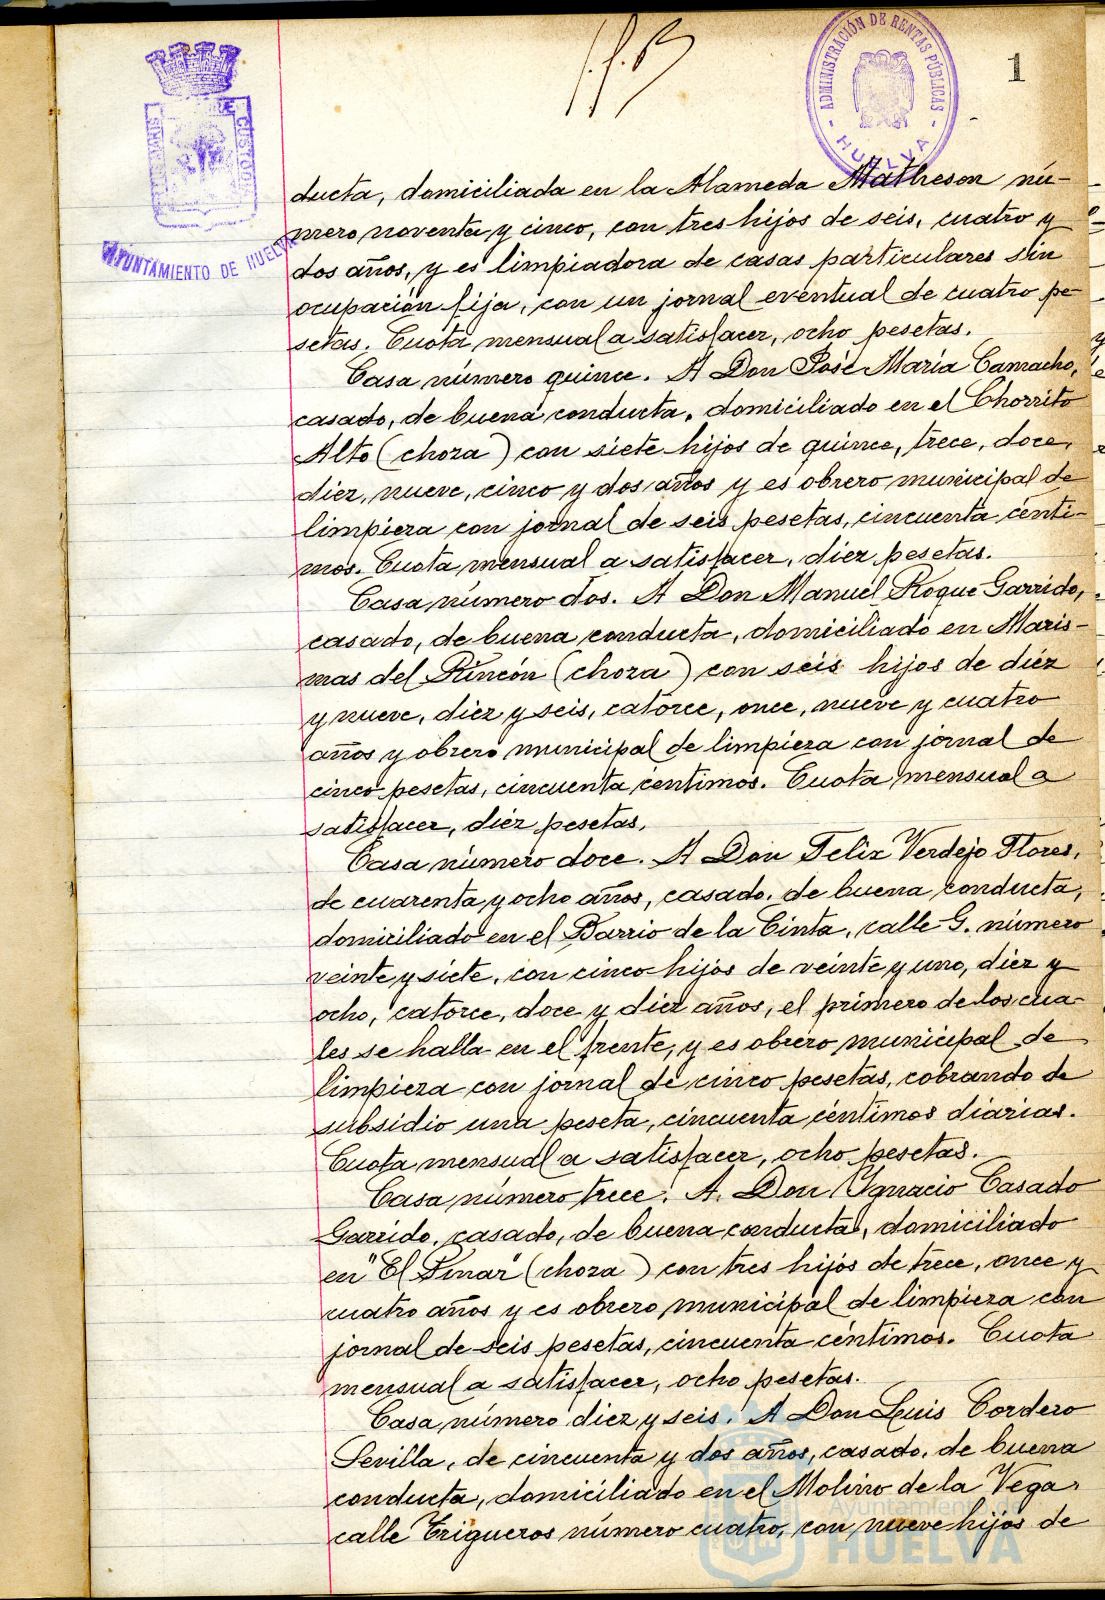 1
ADMINISTRACIÓN DE RENTAS PÚBLICAS
HUELVA
AYUNTAMIENTO DE HUELVA
ducta, domiciliada en la Alameda Matheson nú-
mero noventa y cinco, con tres hijos de seis, cuatro y
dos años, y es limpiadora de casas particulares sin
ocupación fija, con un jornal eventual de cuatro pe-
setas. Cuota mensual a satisfacer, ocho pesetas.
Casa número quince. A Don José María Camacho,
casado, de buena conducta, domiciliado en el Chorrito
Alto (choza) con siete hijos de quince, trece, doce,
diez, nueve, cinco y dos años y es obrero municipal de
limpieza con jornal de seis pesetas, cincuenta cénti-
mos. Cuota mensual a satisfacer, diez pesetas.
Casa número dos. A Don Manuel Roque Garrido,
casado, de buena conducta, domiciliado en Maris-
mas del Rincón (choza) con seis hijos de diéz
y nueve, diez y seis, catorce, once, nueve y cuatro
años y obrero municipal de limpieza con jornal de
cinco pesetas, cincuenta céntimos. Cuota mensual a
satisfacer, diéz pesetas.
Casa número doce. A Don Feliz Verdejo Flores,
de cuarenta y ocho años, casado, de buena conducta,
domiciliado en el Barrio de la Cinta, calle G. número
veinte y siete, con cinco hijos de veinte y uno, diez y
ocho, catorce, doce y diez años, el primero de los cua-
les se halla en el frente, y es obrero municipal de
limpieza con jornal de cinco pesetas, cobrando de
subsidio una peseta, cincuenta céntimos diarias.
Cuota mensual a satisfacer, ocho pesetas.
Casa número trece. A. Don Ygnacio Casado
Garrido, casado, de buena conducta, domiciliado
en "El Pinar" (choza) con tres hijos de trece, once y
cuatro años y es obrero municipal de limpieza con
jornal de seis pesetas, cincuenta céntimos. Cuota
mensual a satisfacer, ocho pesetas.
Casa número diez y seis. A Don Luis Cordero
Sevilla, de cincuenta y dos años, casado, de buena
conducta, domiciliado en el Molino de la Vega,
calle Trigueros número cuatro, con nueve hijos de
Ayuntamiento de
HUELVA